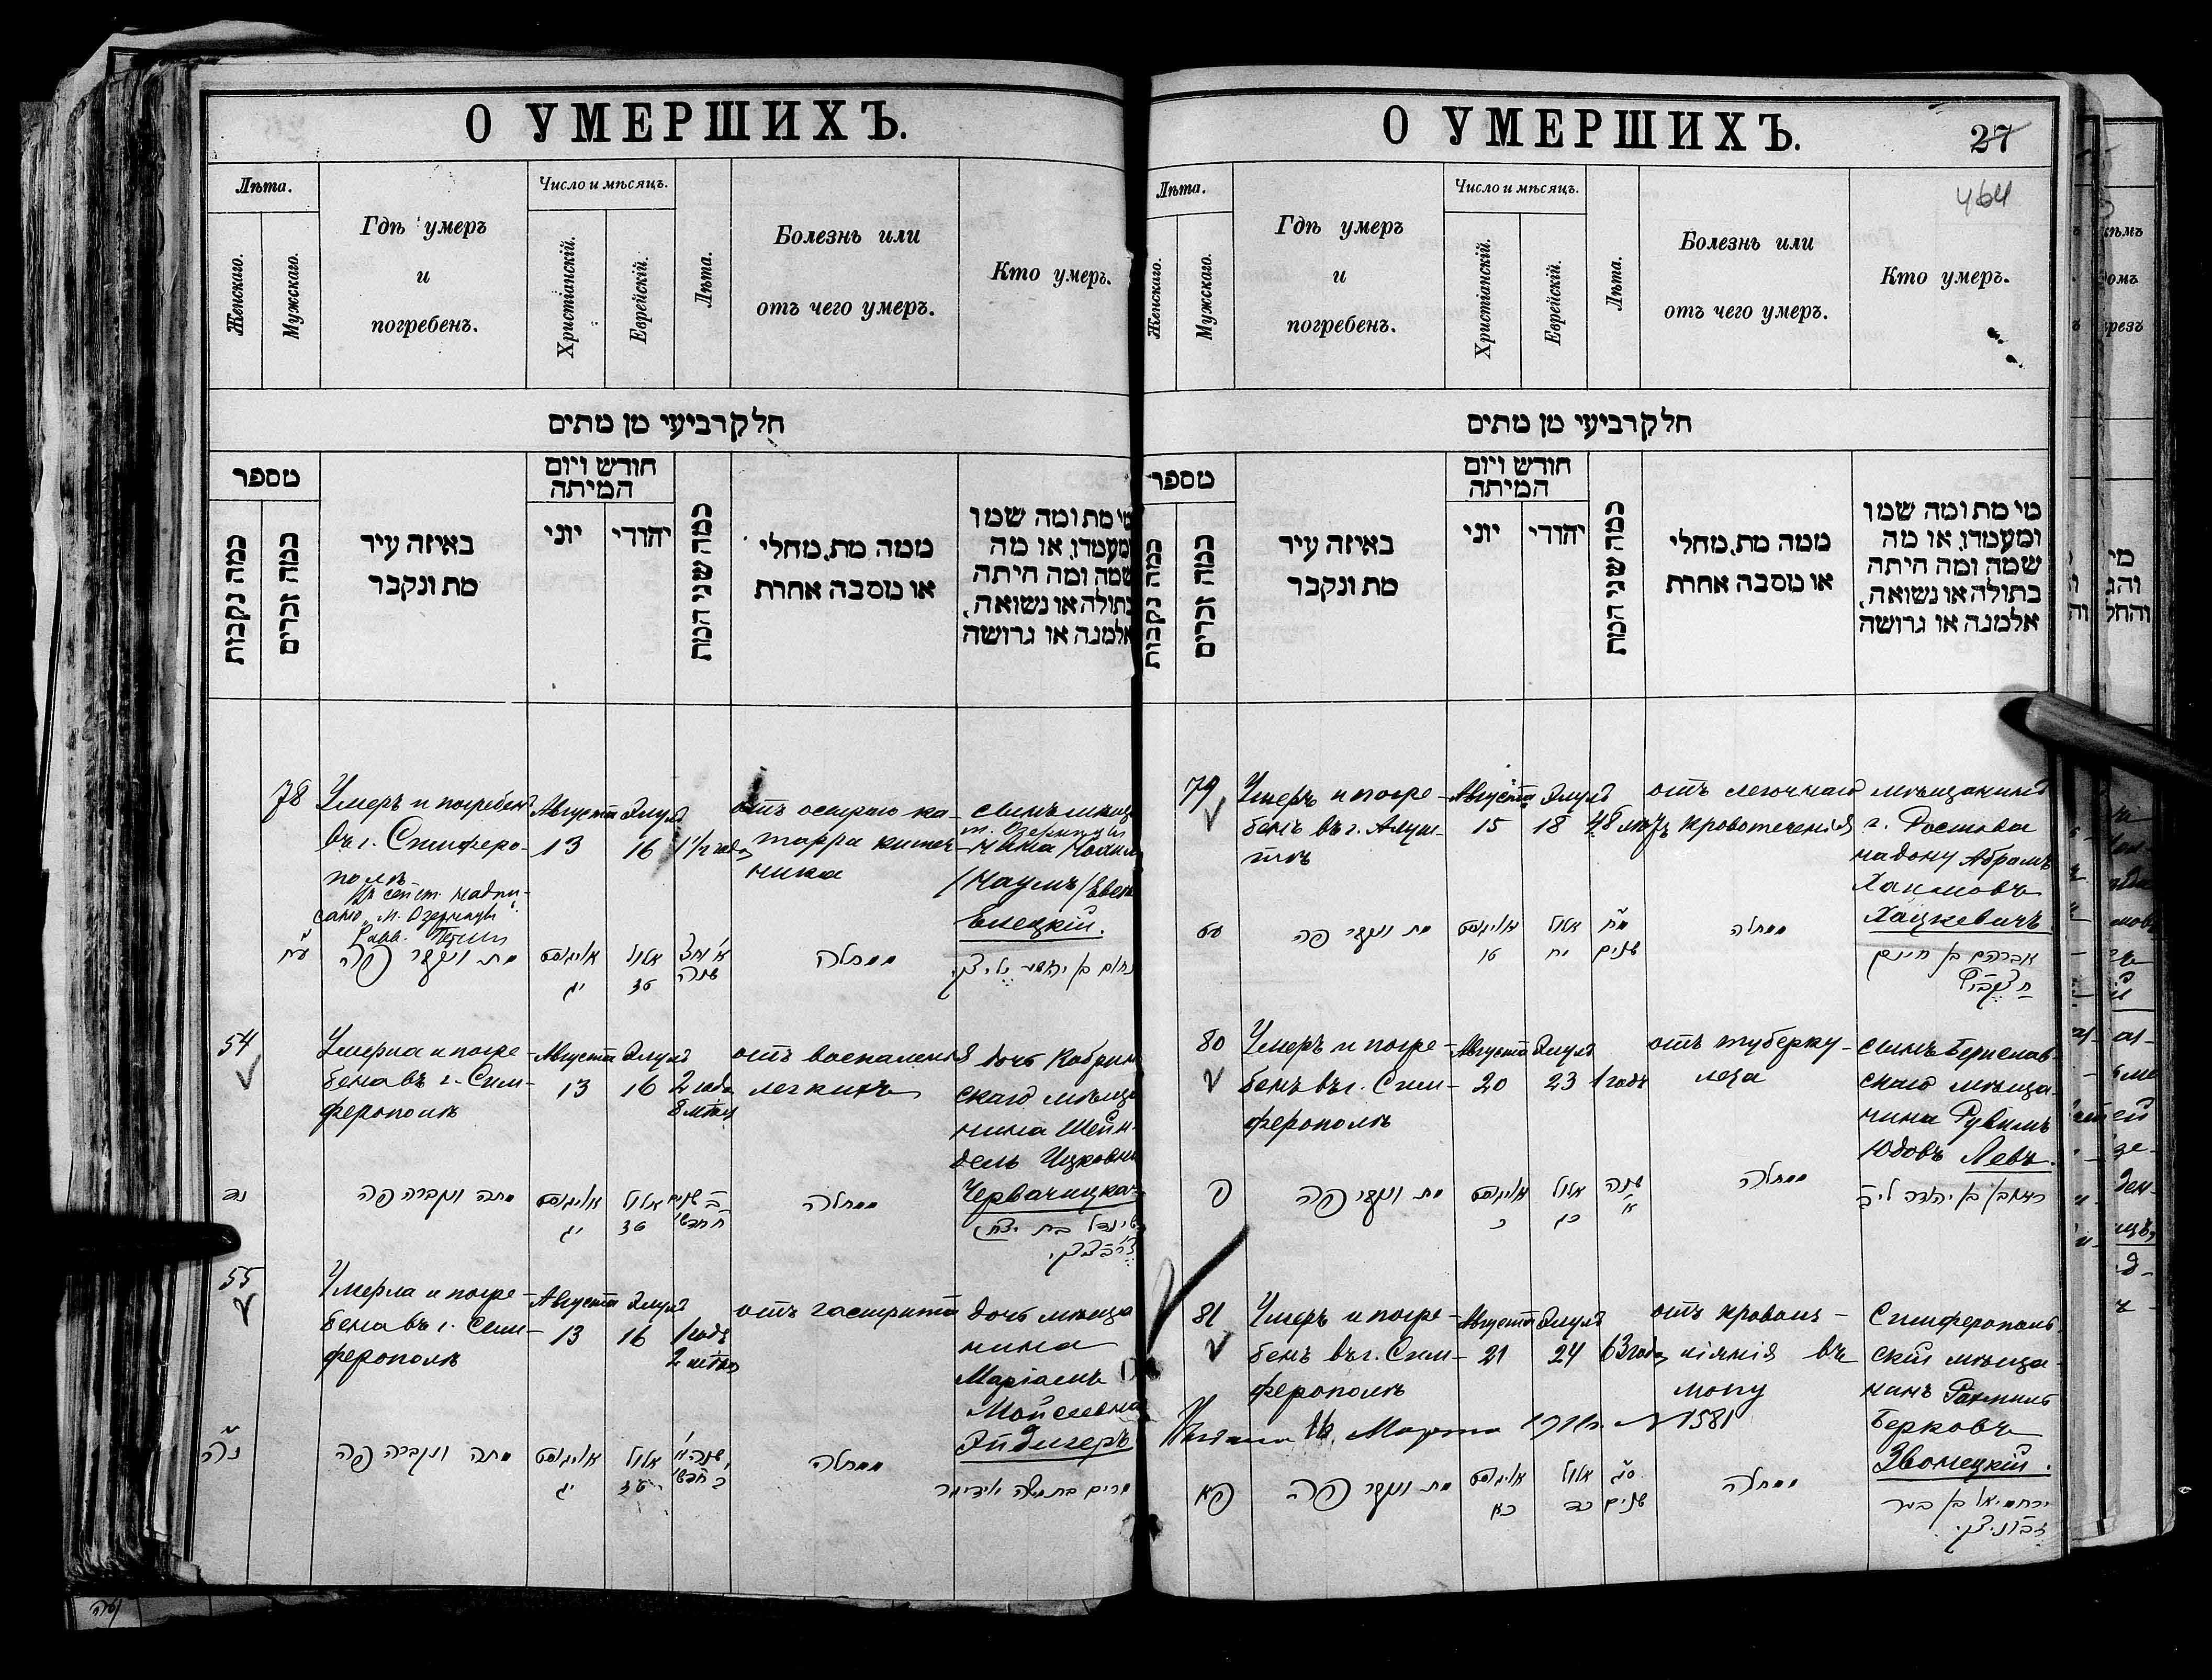 О УМЕРШИХЪ.
Лѣта.
Женскаго.
Мужскаго.
Гдѣ умеръ
и
погребенъ.
Число и мѣсяцъ.
Христіанскій.
Еврейскій.
Лѣта.
Болезнь или
отъ чего умеръ.
Кто умеръ.
חלק רביעי מן מתים
מספר
כמה נקבות
כמה זכרים
באיזה עיר
מת ונקבר
חודש ויום
המיתה
יוני
יהודי
כמה שני המת
ממה מת, מחלי
או מסבה אחרת
מי מת ומה שמו
ומעמדו, או מה
שמה ומה היתה
בתולה או נשואה,
אלמנה או גרושה
78
Умеръ и погребенъ
въ г. Симферо-
полѣ
Августа
13
Элулъ
16
1 1/2 года
отъ остраго ка-
тарра кишеч-
ника
сынъ мѣщ
/Наумъ/
Елецкій.
עח
מת ונקבר פה
אויגוסט
יג
אלול
טז
שנה
ממחלה
54
Умерла и погре-
бена въ г. Сим-
ферополѣ
Августа
13
Элулъ
16
2 года
8 мѣс
отъ воспаленія
легкихъ
дочь Кобрин
скаго мѣща
нина Шейн-
дель Ицковна
Червачицкая
נד
מתה ונקברה פה
אויגוסט
יג
אלול
טז
ב שנים
ח חדשי
ממחלה
שינדל בת יצחק
55
Умерла и погре-
бена въ г. Сим-
ферополѣ
Августа
13
Элулъ
16
1 годъ
2 мѣс
отъ гастрита
дочь мѣща
нина
Маріамъ
Мойсеевна
Эйдигеръ
נה
מתה ונקברה פה
אויגוסט
יג
אלול
טז
שנה א
ב חדשי
ממחלה
מרים בת משה אידיגר
О УМЕРШИХЪ.
27
464
Лѣта.
Женскаго.
Мужскаго.
Гдѣ умеръ
и
погребенъ.
Число и мѣсяцъ.
Христіанскій.
Еврейскій.
Лѣта.
Болезнь или
отъ чего умеръ.
Кто умеръ.
חלק רביעי מן מתים
מספר
כמה נקבות
כמה זכרים
באיזה עיר
מת ונקבר
חודש ויום
המיתה
יוני
יהודי
כמה שני המת
ממה מת, מחלי
או מסבה אחרת
מי מת ומה שמו
ומעמדו, או מה
שמה ומה היתה
בתולה או נשואה,
אלמנה או גרושה
79
Умеръ и погре-
бенъ въ г. Алуш-
тѣ
Августа
15
Элулъ
18
48 лѣтъ
отъ легочнаго
кровотеченія
мѣщанинъ
г. Ростова
на Дону Абрамъ
Хаимовъ
Хацкевичъ
עט
מת ונקבר פה
אויגוסט
טו
אלול
יח
מח
שנים
ממחלה
אברהם בן חיים
80
Умеръ и погре-
бенъ въ г. Сим-
ферополѣ
Августа
20
Элулъ
23
1 годъ
отъ туберку-
леза
сынъ Берислав-
скаго мѣща-
нина Рувимъ
Юдовъ Левъ.
פ
מת ונקבר פה
אויגוסט
כ
אלול
כג
שנה
א
ממחלה
ראובן בן יהודה ליב
81
Умеръ и погре-
бенъ въ г. Сим-
ферополѣ
Августа
21
Элулъ
24
63 года
отъ кровоиз-
ліянія въ
мозгу
Симферополь
скій мѣща-
нинъ Рахмиль
Берковъ
Звонецкій.
16 Марта
№ 1581
פא
מת ונקבר פה
אויגוסט
כא
אלול
כד
סג
שנים
ממחלה
ירחמיאל בן בער